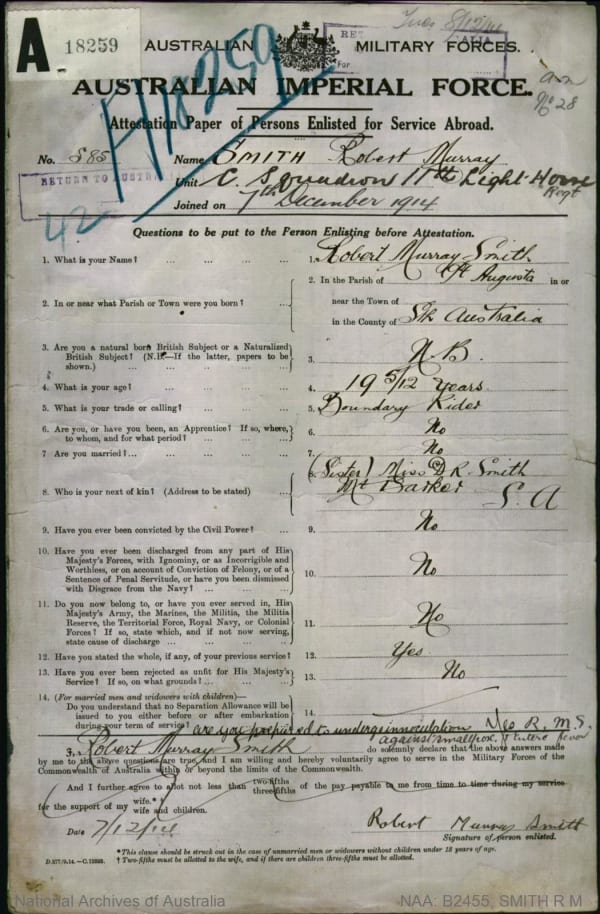 A 18259
Tues 8/12/14
AUSTRALIAN MILITARY FORCES.
AUSTRALIAN IMPERIAL FORCE.
No 28
A/18259
Attestation Paper of Persons Enlisted for Service Abroad.
No. 585 Name SMITH Robert Murray
RETURN TO AUSTRA
Unit C. Squadron 11th Light Horse Regt
Joined on 7th December 1914
42
Questions to be put to the Person Enlisting before Attestation.
1. What is your Name? ... 1. Robert Murray Smith
2. In or near what Parish or Town were you born? ... 2. In the Parish of Pt Augusta in or
near the Town of
in the County of Sth Australia
3. Are you a natural born British Subject or a Naturalized
British Subject? (N.B.—If the latter, papers to be
shown.) ... 3. N.B.
4. What is your age? ... 4. 19 5/12 years
5. What is your trade or calling? ... 5. Boundary Rider
6. Are you, or have you been, an Apprentice? If so, where,
to whom, and for what period? ... 6. No
7. Are you married? ... 7. No
8. Who is your next of kin? (Address to be stated) ... 8. (Sister) Miss D R. Smith
Mt Barker S. A
9. Have you ever been convicted by the Civil Power? ... 9. No
10. Have you ever been discharged from any part of His
Majesty's Forces, with Ignominy, or as Incorrigible and
Worthless, or on account of Conviction of Felony, or of a
Sentence of Penal Servitude, or have you been dismissed
with Disgrace from the Navy? ... 10. No
11. Do you now belong to, or have you ever served in, His
Majesty's Army, the Marines, the Militia, the Militia
Reserve, the Territorial Force, Royal Navy, or Colonial
Forces? If so, state which, and if not now serving,
state cause of discharge ... 11. No
12. Have you stated the whole, if any, of your previous service? 12. Yes.
13. Have you ever been rejected as unfit for His Majesty's
Service? If so, on what grounds? ... 13. No
14. (For married men and widowers with children)—
Do you understand that no Separation Allowance will be
issued to you either before or after embarkation
during your term of service? 14.
are you prepared to undergo innoculation Yes R. M. S.
against smallpox & Enteric fever
I, Robert Murray Smith do solemnly declare that the above answers made
by me to the above questions are true, and I am willing and hereby voluntarily agree to serve in the Military Forces of the
Commonwealth of Australia within or beyond the limits of the Commonwealth.
And I further agree to allot not less than two-fifths three-fifths of the pay payable to me from time to time during my service
for the support of my wife.* wife and children.
Date 7/12/14 Robert Murray Smith
Signature of person enlisted.
*This clause should be struck out in the case of unmarried men or widowers without children under 18 years of age.
† Two-fifths must be allotted to the wife, and if there are children three-fifths must be allotted.
National Archives of Australia NAA: B2455, SMITH R M